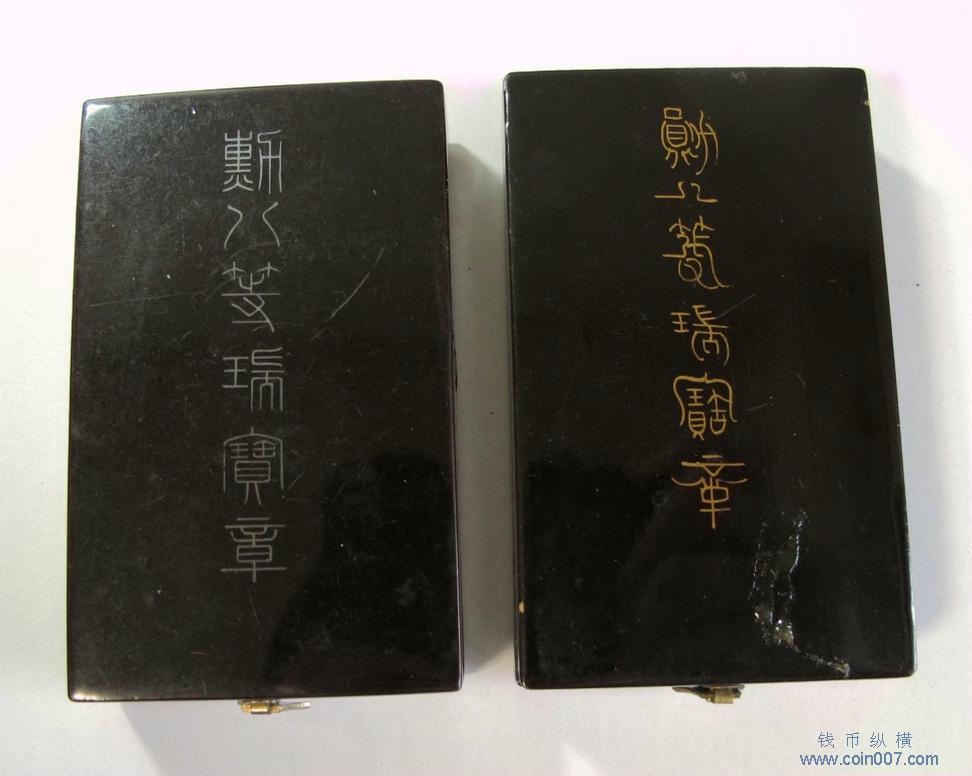 勳八等瑞寶章
勳八等瑞寶章
钱币纵横
www.coin007.com